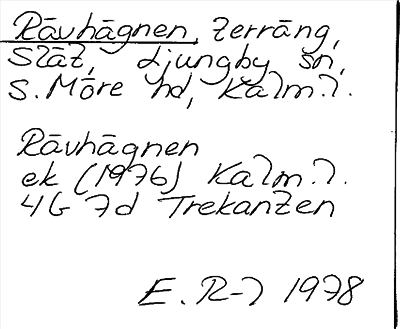 Rävhägnen, terräng,
Slät, Ljungby sn,
S. Möre hd, Kalm. l.
Rävhägnen
ek (1976) Kalm. l.
4G 7d Trekanten
E. R-l 1978